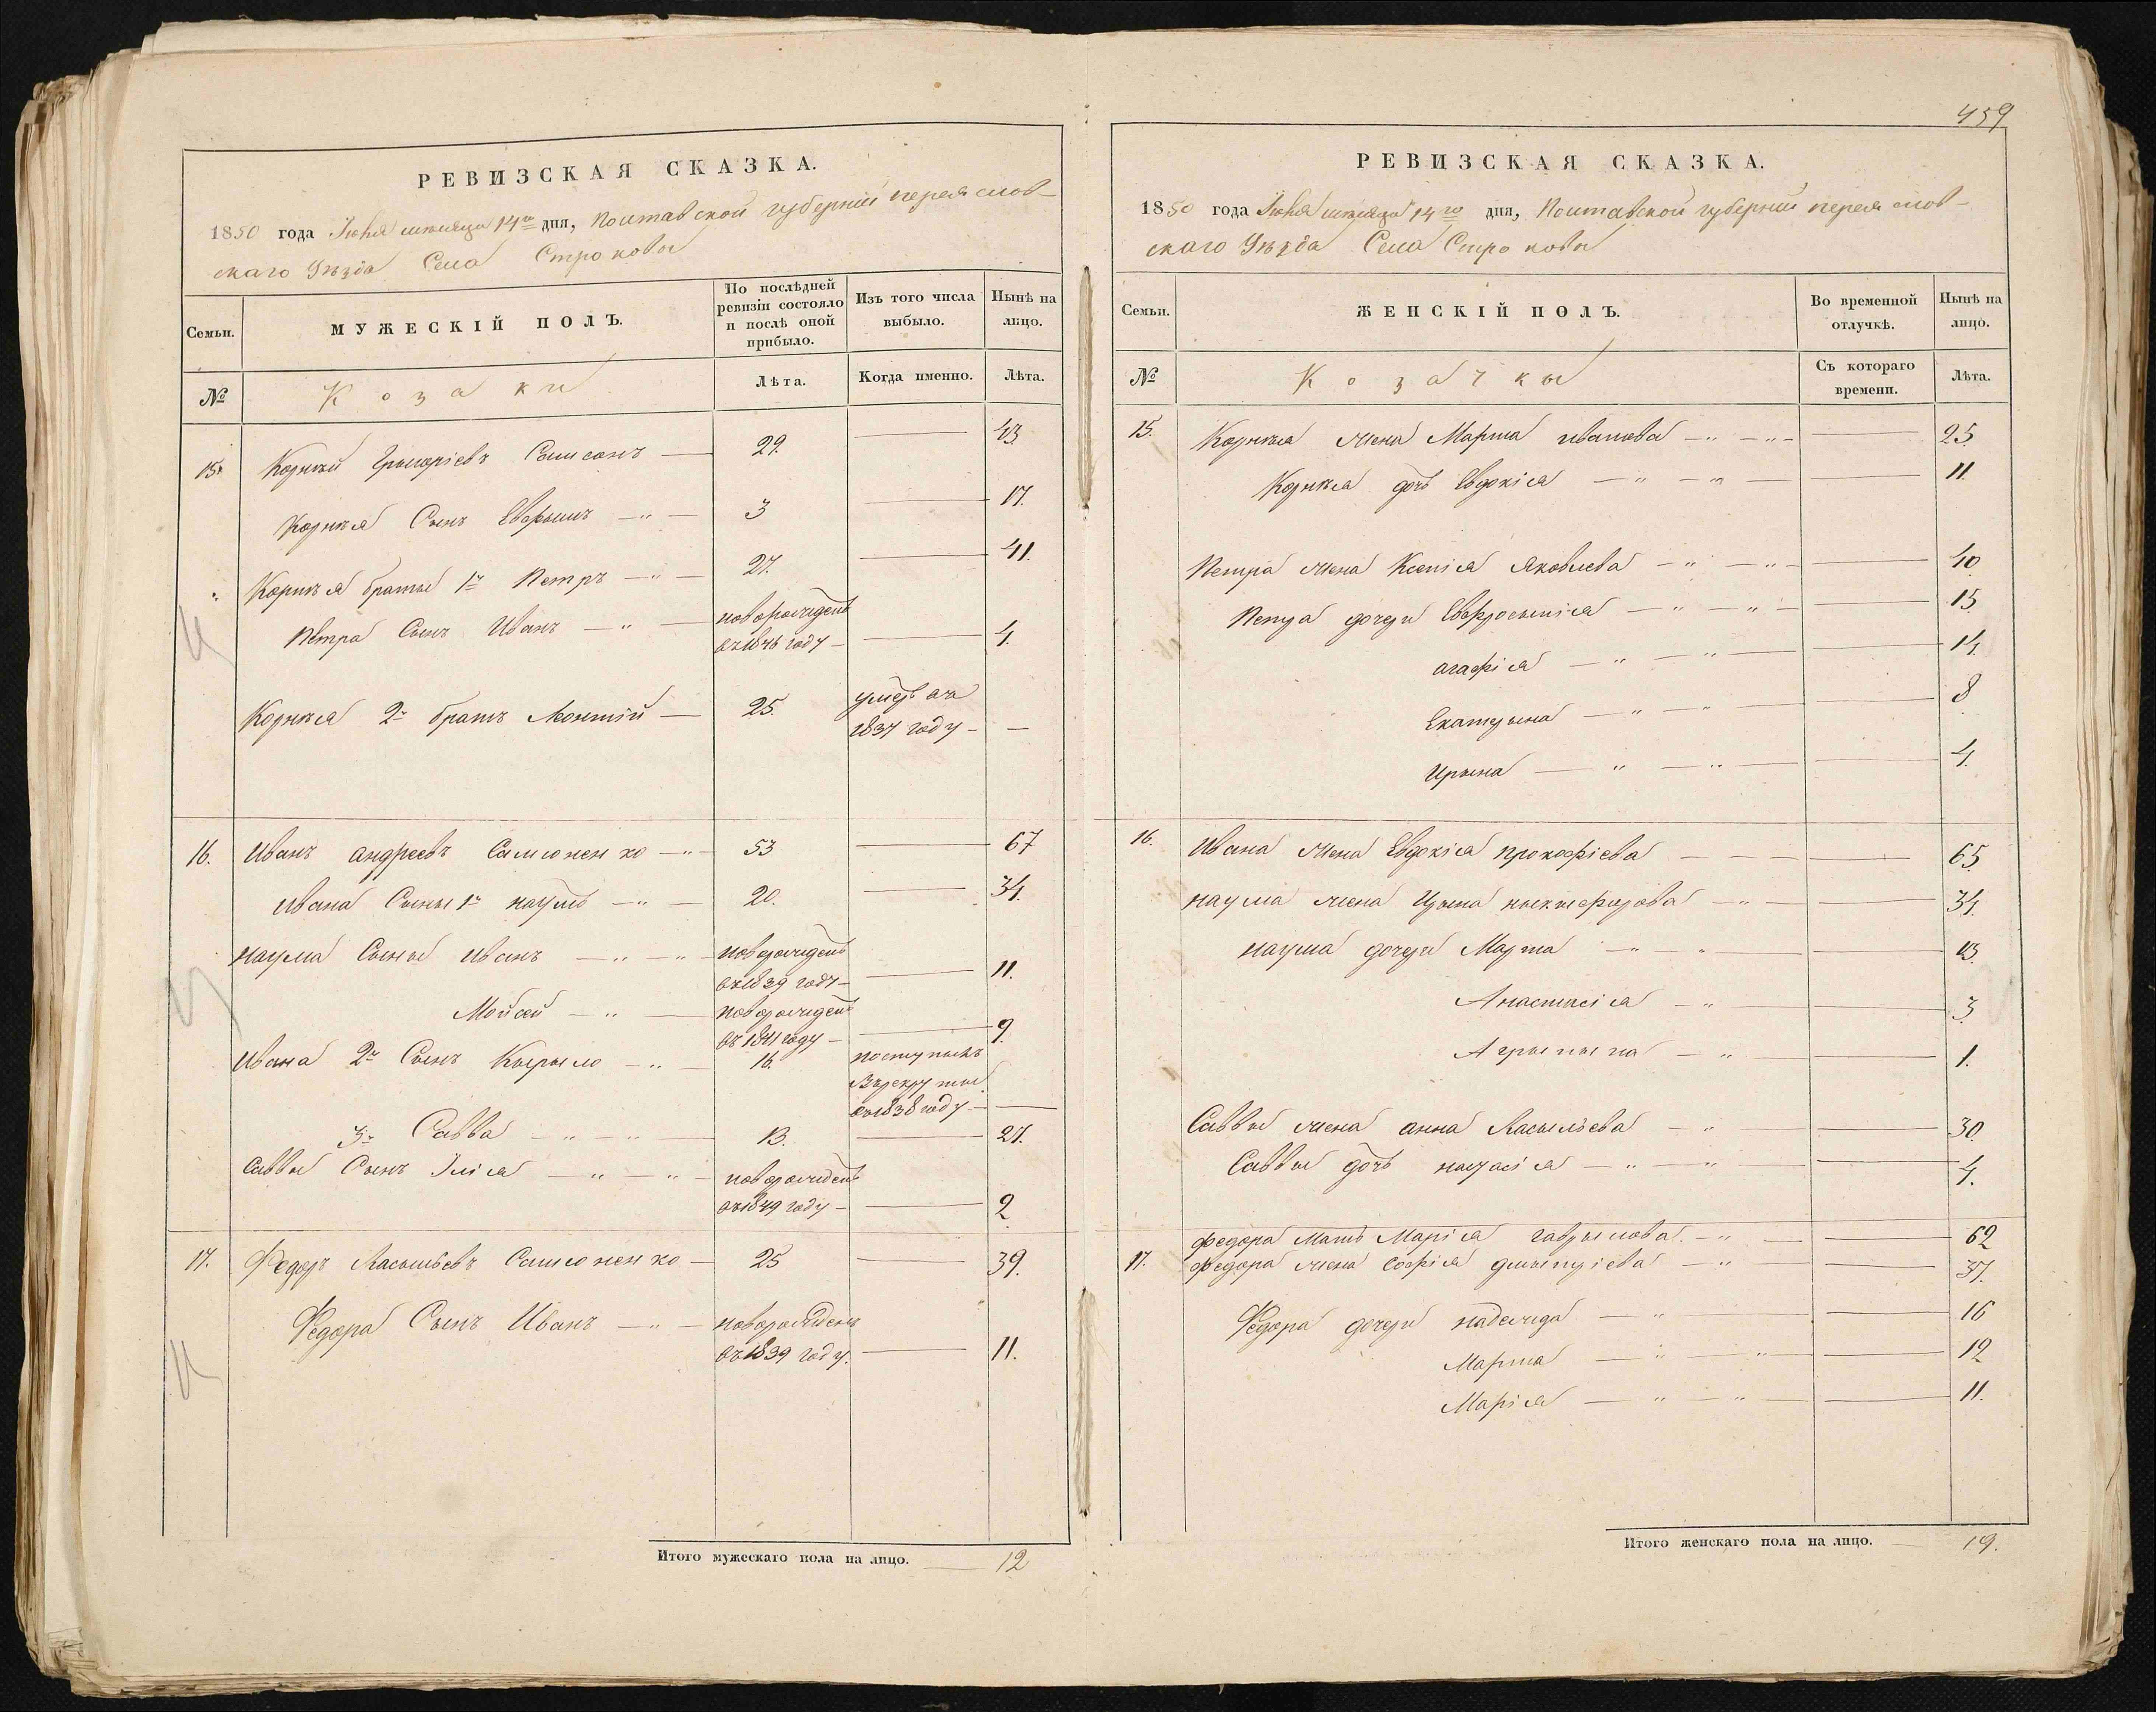 РЕВИЗСКАЯ СКАЗКА.
1850 года Июня месяца 14го дня, Полтавской губерніи переяслов-
скаго Уѣзда Села Строковы
Семьи.
МУЖЕСКІЙ ПОЛЪ.
По послѣдней ревизіи состояло и послѣ оной прибыло.
Изъ того числа выбыло.
Нынѣ на лицо.
№
Козаки
Лѣта.
Когда именно.
Лѣта.
15. Корнѣй Грыгоріевъ Самсонъ — 29. — 43
Корнѣя Сынъ Евфымъ — „ — 3 — 17.
Корнѣя братья 1й Петръ — „ — 27. — 41.
Петра Сынъ Иванъ — „ — новорожденъ
въ 1846 году — — 4.
Корнѣя 2й братъ Леонтій — 25. умеръ въ
1837 году — —
16. Иванъ андреевъ Самсоненко — „ — 53 — 67
Ивана Сыны 1й наумъ — „ — 20. — 34.
наума Сыны Иванъ — „ — „ — новорожденъ
въ 1839 году — — 11.
Мойсей — „ — новорожденъ
въ 1841 году — — 9.
Ивана 2й Сынъ Кырыло — „ — 16. поступилъ
Въ рекруты
въ 1838 году — —
3й Савва — „ — „ — 13. — 27.
Саввы Сынъ Ілія — „ — „ — новорожденъ
въ 1849 году — — 2
17. Федоръ Васыльевъ Самсоненко — 25 — 39.
Федора Сынъ Иванъ — „ — новорожденъ
въ 1839 году. — 11.
Итого мужескаго пола на лицо. — 12
459
РЕВИЗСКАЯ СКАЗКА.
1850 года Июня месяца 14го дня, Полтавской губерніи переяслов-
скаго Уѣзда Села Строковы
Семьи.
ЖЕНСКІЙ ПОЛЪ.
Во временной отлучкѣ.
Нынѣ на лицо.
№
Козачкы
Съ котораго времени.
Лѣта.
15. Корнѣя жена Марта иванова — „ — „ — — 25
Корнѣя дочь Евдокія — „ — „ — — 11.
Петра жена Ксенія Яковлева — „ — „ — — 40
Петра дочери Евфросынія — „ — „ — — 15
агафія — „ — „ — — 14.
Екатерына — „ — „ — — 8
Ирына — „ — „ — — 4.
16. Ивана жена Евдокія прокофіева — — — — 65.
наума жена Ирына ныкыфорова — „ — — 34.
наума дочери Марта — „ — „ — — 13.
Анастасія — „ — — 3
Агрыпына — „ — 1.
Саввы жена анна Васыльева — „ — — 30.
Саввы дочь — „ — „ — — 4.
федора Мать Марія гаврылова. — „ — — 62
17. федора жена Софія дмытріева — „ — — 37.
Федора дочери надежда — „ — — 16
Марта — „ — „ — — 12
Марія — „ — „ — — 11.
Итого женскаго пола на лицо. — 19.